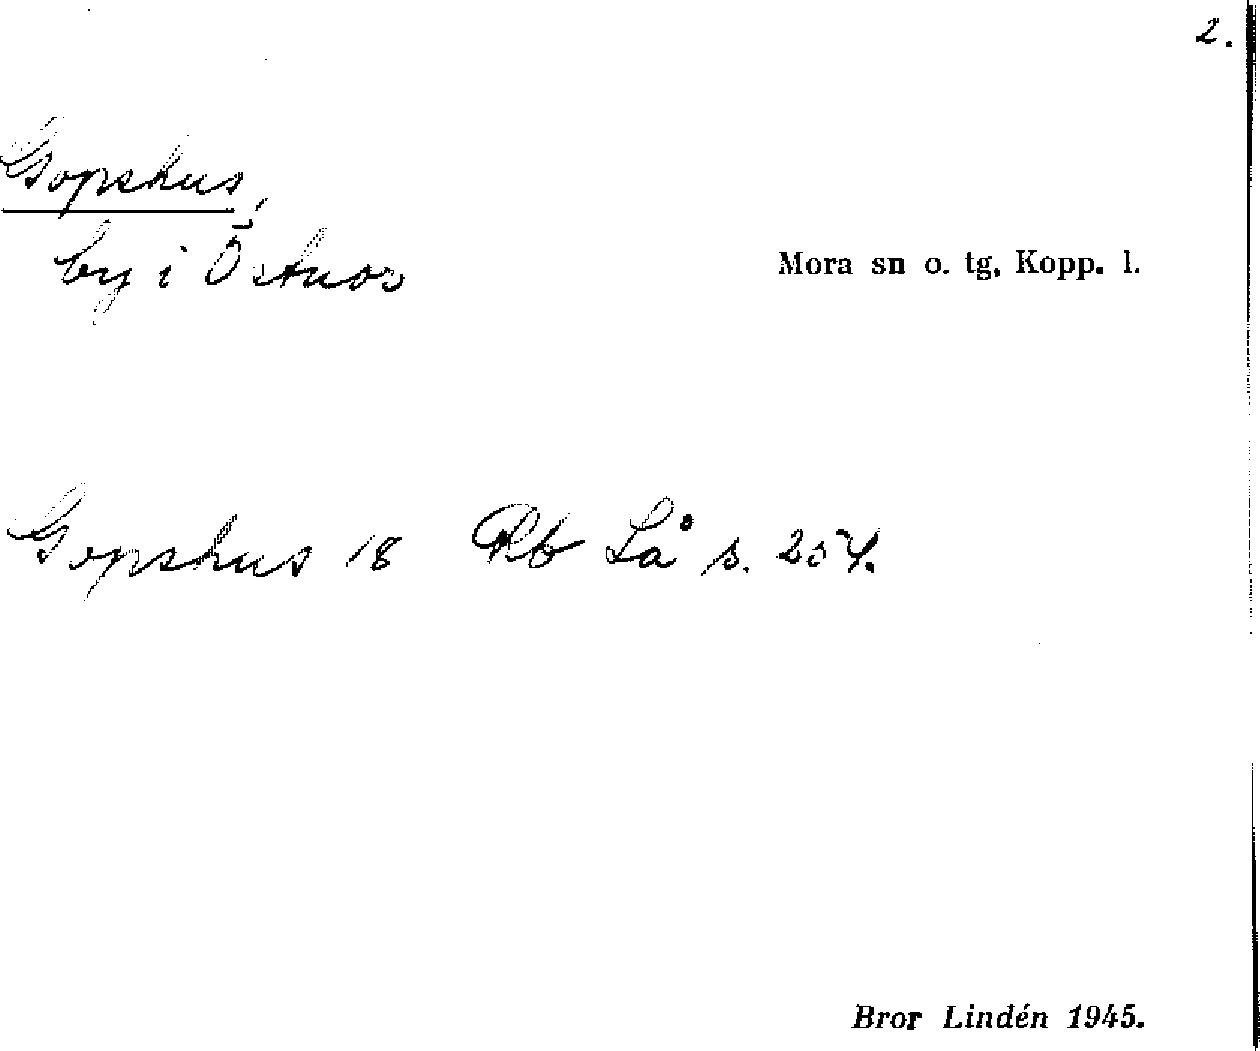 2.
Gopshus,
by i Östnor
Mora sn o. tg, Kopp. l.
Gopshus 18 Rb Lå s. 254.
Bror Lindén 1945.